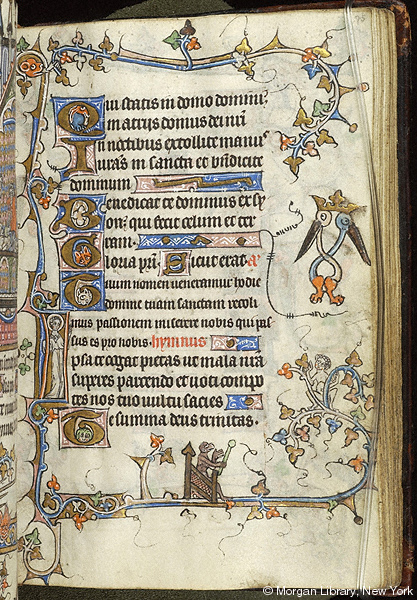 Qui statis in domo domini:
in atriis domus dei nr̄i
In noctibus extollite manus
uras̄ in sancta et bn̄dicite
dominum
Benedicat te dominus ex sy
on: qui fecit celum et ter
ram.
Gloria pr̄i. Sicut erat. a
tuum nomen veneramur hodie
domine tuam sanctam recoli
mus passionem miserere nobis qui pas
sus es pro nobis. hymnus
Ipsa te cogat pietas ut mala nr̄a
superes parcendo et voti compo
tes nos tuo vultu sacies
Te summa deus trinitas.
© Morgan Library, New York